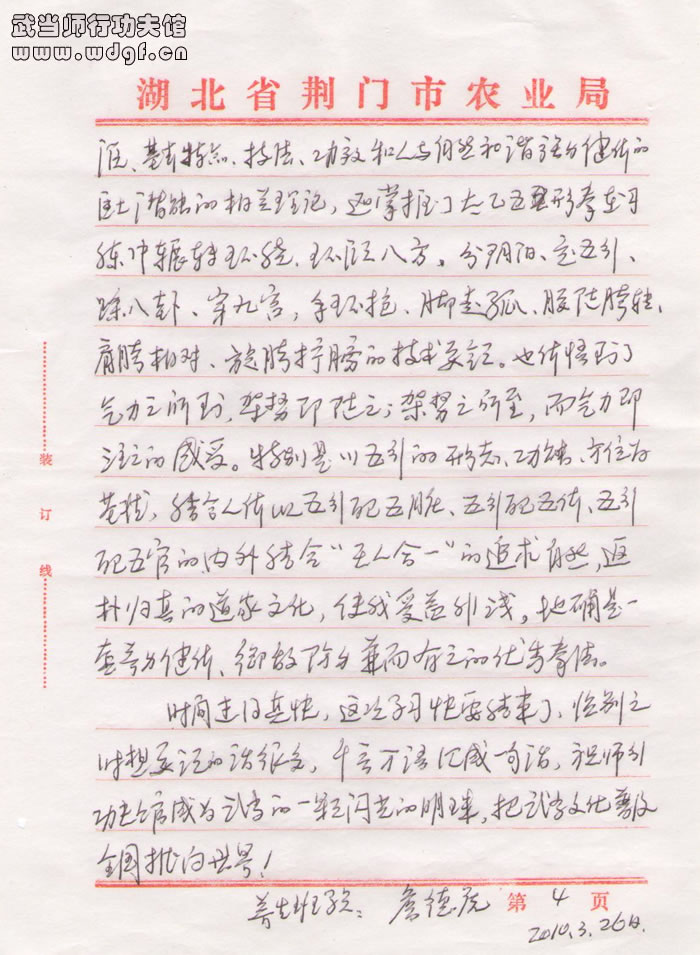 武当师行功夫馆
www.wdgf.cn
湖北省荆门市农业局
源、基本特点、技法、功效和人与自然和谐养身健体的
巨大潜能的相关理论，还掌握了太乙五行拳在习
练中辗转环绕、环顾八方，分阴阳、定五行、
踩八卦、穿九宫，手环抱、脚走弧、腰随胯转、
肩胯相对、旋胯拧膀的技术要领。也体悟到了
气力之所到，架势即随之；架势之所至，而气力即
注之的感受。特别是以五行的形态、功能、方位为
基桩，结合人体以五行配五脏、五行配五体、五行
配五官的内外结合“天人合一”的追求自然，返
朴归真的道家文化，使我受益非浅。地确是一
套养身健体、御敌防身兼而有之的优秀拳法。
时间过得真快，这次学习快要结束了，临别之
时想要说的话很多，千言万语汇成一句话，祝师行
功夫馆成为武当的一颗闪光的明珠，把武当文化普及
全国推向世界！
养生班学员：詹德
第 4 页
2010.3.26日.
装
订
线